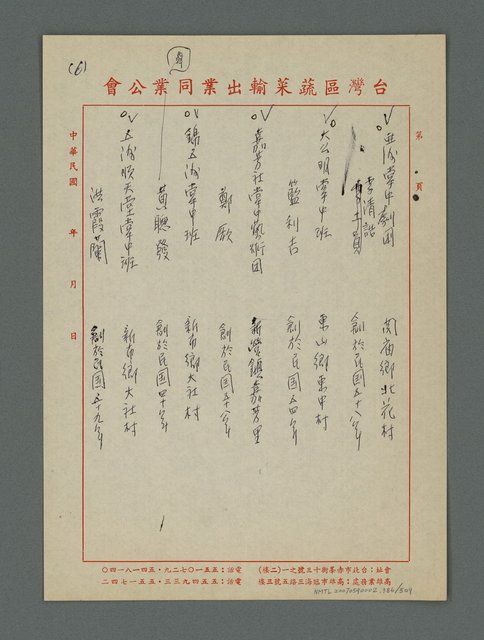 (6)
台灣區蔬菜輸出業同業公會
第 頁
亞洲掌中劇團
李清誥
關廟鄉北花村
創於民國五十八年
大公明掌中班
藍利吉
東山鄉東中村
創於民國五四年
嘉芳社掌中藝術團
鄭 啟
新營鎮嘉芳里
創於民國五十八年
錦五洲掌中班
黃聰發
新市鄉大社村
創於民國四十年
五洲順天堂掌中班
洪霞蘭
新市鄉大社村
創於民國五十九年
中華民國 年 月 日
會址：台北市赤峯街十三號之一(二樓)
電話：五五一〇七二九·五四一八一四〇
高雄業務處：高雄市冠海三路五號三樓
電話：五五四九三三·五五一七四二
NMTL20070590002.386/504